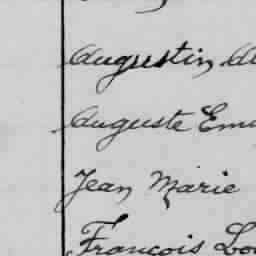 Augustin
Auguste
Jean Marie
François